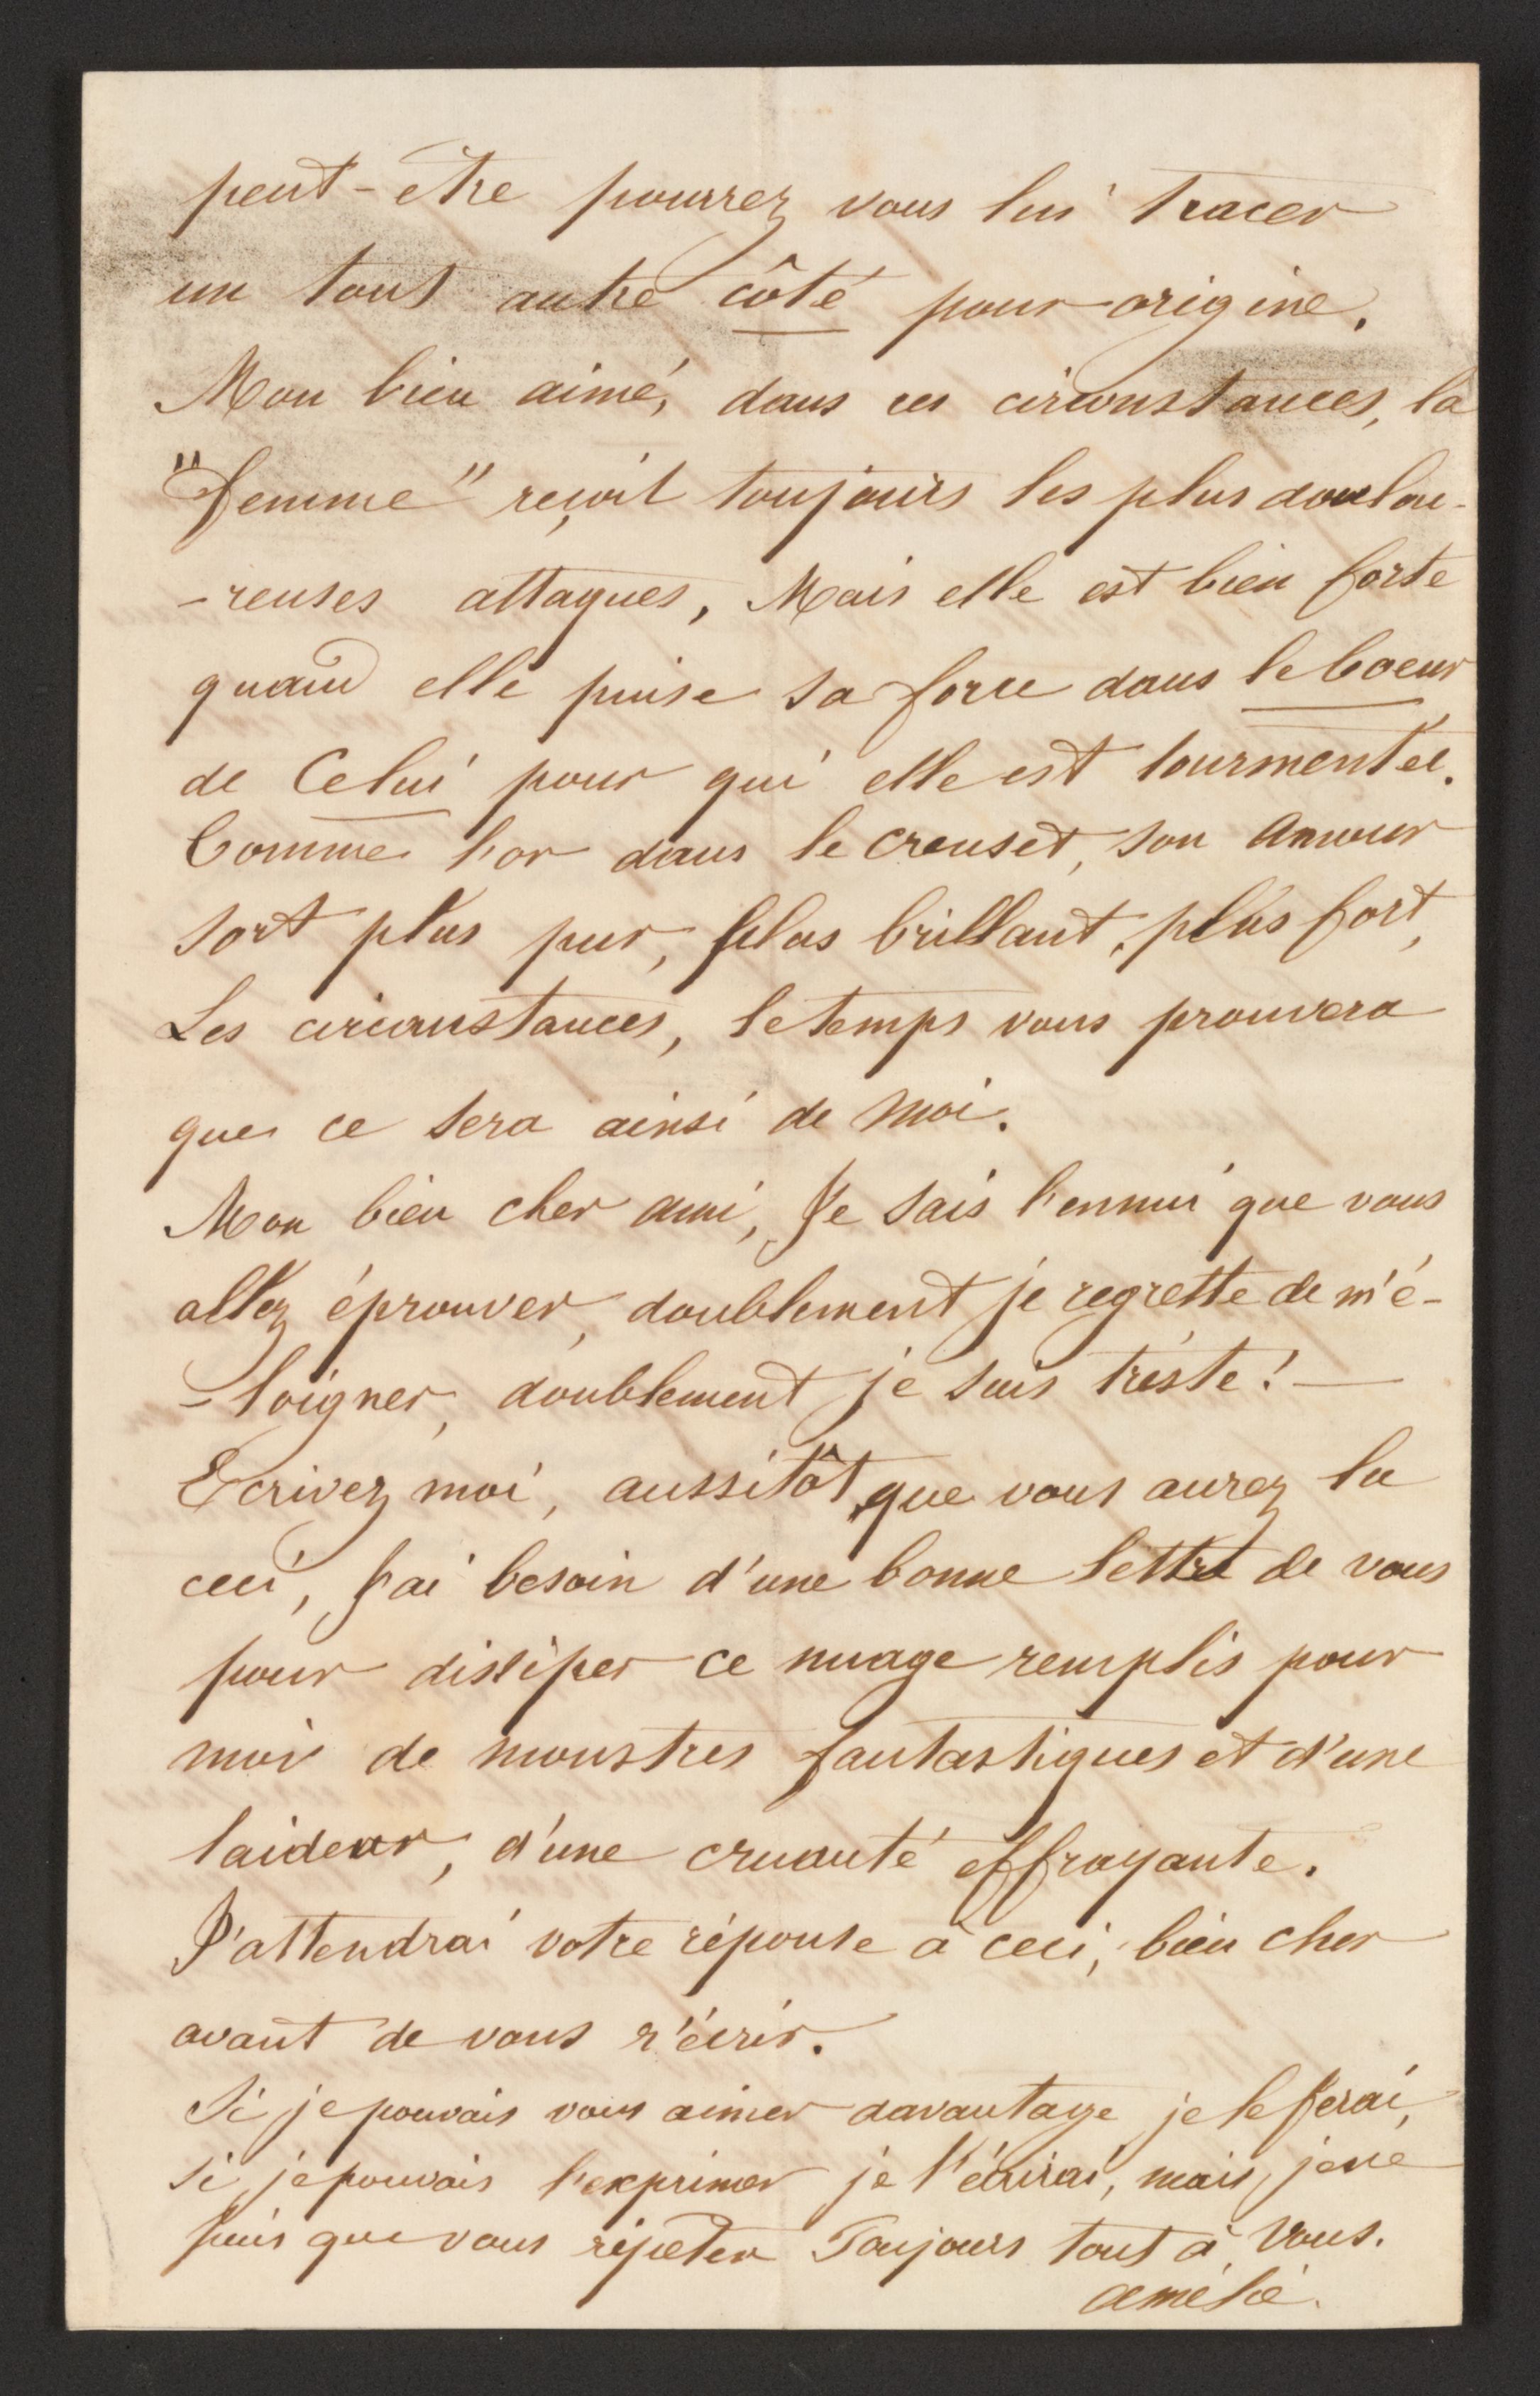 peut-être pourrez vous lui tracer
un tout autre côté pour origine.
Mon bien aimé, dans ces circonstances, la
"femme" reçoit toujours les plus doulou-
-reuses attaques, Mais elle est bien forte
quand elle puise sa force dans le Coeur
de Celui pour qui elle est tourmentée.
Comme l'or dans le creuset, son Amour
sort plus pur, plus brillant, plus fort,
Les circonstances, le temps vous prouvera
que ce sera ainsi de Moi.
Mon bien cher ami, Je sais l'ennui que vous
allez éprouver, doublement je regrette de m'é-
-loigner, doublement je suis triste! —
Ecrivez moi, aussitôt que vous aurez lu
ceci, J'ai besoin d'une bonne lettre de vous
pour dissiper ce nuage remplis pour
moi de monstres fantastiques et d'une
laideur, d'une cruauté effrayante.
J'attendrai votre réponse à ceci, bien cher
avant de vous r'écrir.
Si je pouvais vous aimer davantage je le ferai,
si je pouvais l'exprimer je l'écrirai, mais je ne
puis que vous répeter Toujours tout à Vous.
Amélie.